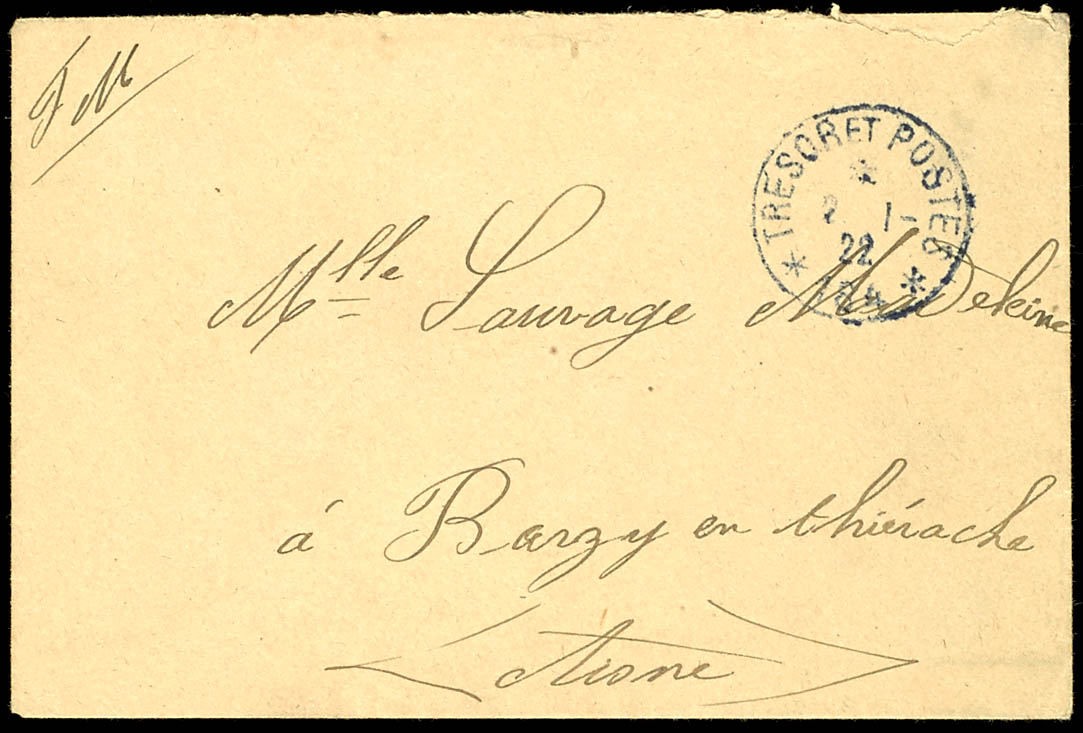 F M
TRESOR ET POSTES
*
2 1-
22
* 184 *
Mlle Sauvage Madeleine
à Barzy en thiérache
Aisne